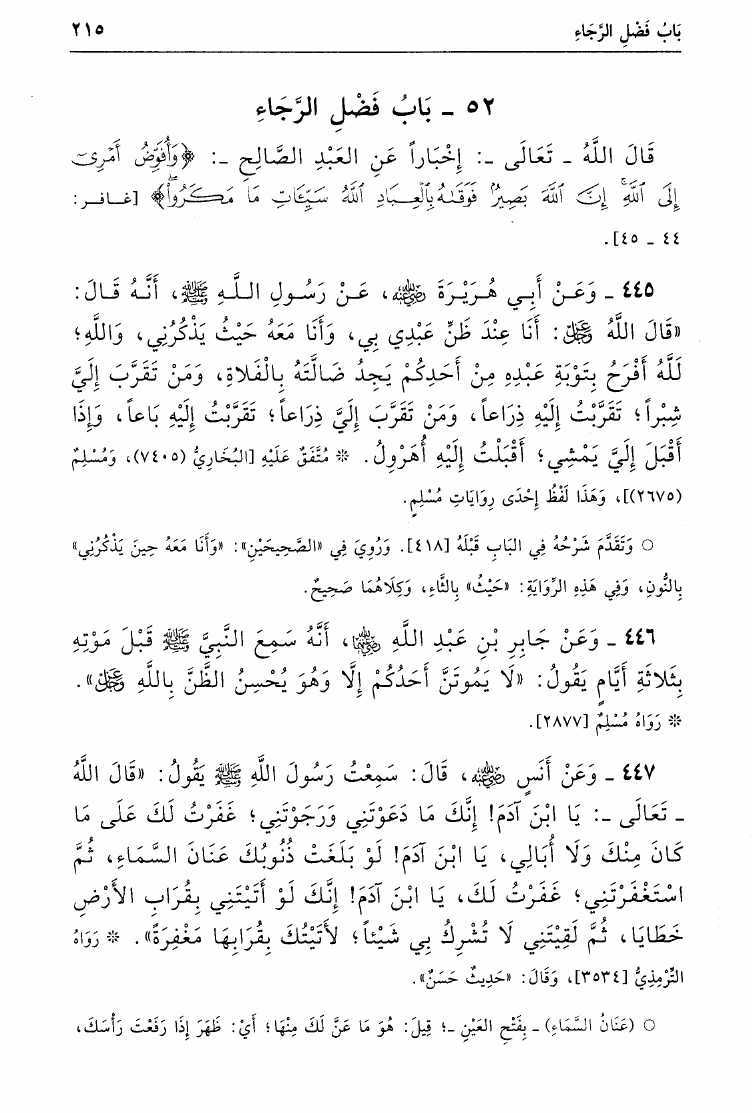 بَابُ فَضْلِ الرَّجَاءِ ٢١٥
٥٢ ـ بَابُ فَضْلِ الرَّجَاءِ
قَالَ اللَّهُ ـ تَعَالَى ـ: إِخْبَاراً عَنِ العَبْدِ الصَّالِحِ ـ: ﴿وَأُفَوِّضُ أَمْرِىٓ
إِلَى ٱللَّهِۚ إِنَّ ٱللَّهَ بَصِيرٌۢ بِٱلْعِبَادِ فَوَقَىٰهُ ٱللَّهُ سَيِّـَٔاتِ مَا مَكَرُوا۟ۖ﴾ [غـافـر:
٤٤ ـ ٤٥].
٤٤٥ ـ وَعَـنْ أَبِـي هُـرَيْـرَةَ رضي الله عنه، عَـنْ رَسُـولِ الـلَّـهِ ﷺ، أَنَّـهُ قَـالَ:
«قَالَ اللَّهُ عز وجل: أَنَا عِنْدَ ظَنِّ عَبْدِي بِي، وَأَنَا مَعَهُ حَيْثُ يَذْكُرُنِي، وَاللَّهِ؛
لَلَّهُ أَفْرَحُ بِتَوْبَةِ عَبْدِهِ مِنْ أَحَدِكُمْ يَجِدُ ضَالَّتَهُ بِالْفَلَاةِ، وَمَنْ تَقَرَّبَ إِلَيَّ
شِبْراً؛ تَقَرَّبْتُ إِلَيْهِ ذِرَاعاً، وَمَنْ تَقَرَّبَ إِلَيَّ ذِرَاعاً؛ تَقَرَّبْتُ إِلَيْهِ بَاعاً، وَإِذَا
أَقْبَلَ إِلَيَّ يَمْشِي؛ أَقْبَلْتُ إِلَيْهِ أُهَرْوِلُ. * مُتَّفَقٌ عَلَيْهِ [البُخَارِيُّ (٧٤٠٥)، وَمُسْلِمٌ
(٢٦٧٥)]، وَهَذَا لَفْظُ إِحْدَى رِوَايَاتِ مُسْلِمٍ.
○ وَتَقَدَّمَ شَرْحُهُ فِي البَابِ قَبْلَهُ [٤١٨]. وَرُوِيَ فِي «الصَّحِيحَيْنِ»: «وَأَنَا مَعَهُ حِينَ يَذْكُرُنِي»
بِالنُّونِ، وَفِي هَذِهِ الرِّوَايَةِ: «حَيْثُ» بِالثَّاءِ، وَكِلَاهُمَا صَحِيحٌ.
٤٤٦ ـ وَعَنْ جَابِرِ بْنِ عَبْدِ اللَّهِ رضي الله عنهما، أَنَّهُ سَمِعَ النَّبِيَّ ﷺ قَبْلَ مَوْتِهِ
بِثَلَاثَةِ أَيَّامٍ يَقُولُ: «لَا يَمُوتَنَّ أَحَدُكُمْ إِلَّا وَهُوَ يُحْسِنُ الظَّنَّ بِاللَّهِ عز وجل».
* رَوَاهُ مُسْلِمٌ [٢٨٧٧].
٤٤٧ ـ وَعَنْ أَنَسٍ رضي الله عنه، قَالَ: سَمِعْتُ رَسُولَ اللَّهِ ﷺ يَقُولُ: «قَالَ اللَّهُ
ـ تَعَالَى ـ: يَا ابْنَ آدَمَ! إِنَّكَ مَا دَعَوْتَنِي وَرَجَوْتَنِي؛ غَفَرْتُ لَكَ عَلَى مَا
كَانَ مِنْكَ وَلَا أُبَالِي، يَا ابْنَ آدَمَ! لَوْ بَلَغَتْ ذُنُوبُكَ عَنَانَ السَّمَاءِ، ثُمَّ
اسْتَغْفَرْتَنِي؛ غَفَرْتُ لَكَ، يَا ابْنَ آدَمَ! إِنَّكَ لَوْ أَتَيْتَنِي بِقُرَابِ الأَرْضِ
خَطَايَا، ثُمَّ لَقِيْتَنِي لَا تُشْرِكُ بِي شَيْئاً؛ لأَتَيْتُكَ بِقُرَابِهَا مَغْفِرَةً». * رَوَاهُ
التِّرْمِذِيُّ [٣٥٣٤]، وَقَالَ: «حَدِيثٌ حَسَنٌ».
○ (عَنَانُ السَّمَاءِ) ـ بِفَتْحِ العَيْنِ ـ؛ قِيلَ: هُوَ مَا عَنَّ لَكَ مِنْهَا؛ أَيْ: ظَهَرَ إِذَا رَفَعْتَ رَأْسَكَ،